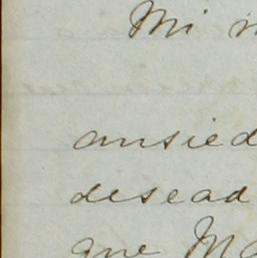 Mi
ansied
desead
que Ma